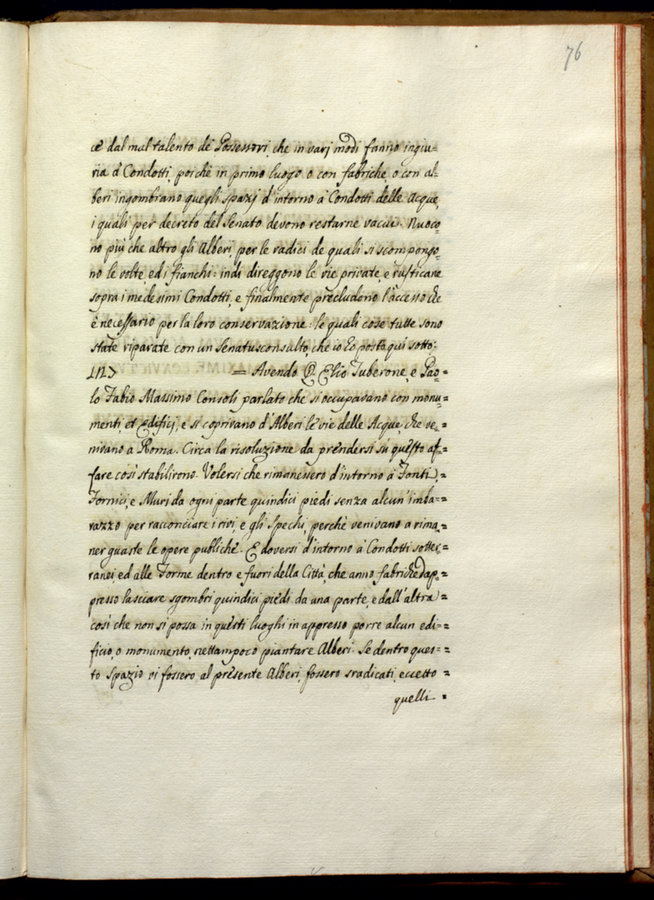 76
cè dal mal talento de' Possessori, che in varj modi fanno ingiu-
ria a' Condotti, poichè in primo luogo o con fabriche, o con al-
beri ingombrano quegli spazj d'intorno a' Condotti delle Acque,
i quali per decreto del Senato devono restarne vacui. Nuoco-
no più che altro gli Alberi per le radici de quali si scompongo-
no le volte, ed i fianchi: indi direggono le vie private, e rusticane
sopra i medesimi Condotti, e finalmente precludono l'accesso che
è necessario per la loro conservazione: le quali cose tutte sono
state riparate con un Senatusconsulto, che io ho posta qui sotto:
127 = Avendo Q. Elio Tuberone, e Pao =
lo Fabio Massimo Consoli parlato che si occupavano con monu =
menti et Edifici, e si coprivano d'Alberi le vie delle Acque, che ve =
nivano a Roma. Circa la risoluzione da prendersi su questo af =
fare così stabilirono. Volersi che rimanessero d'intorno a' Fonti, =
Fornici, e Muri da ogni parte quindici piedi senza alcun' imba =
razzo per racconciare i rivi, e gli Spechi, perchè venivano a rima =
ner guaste le opere publiche. E doversi d'intorno a' Condotti sotter =
ranei, ed alle Forme dentro e fuori della Città, che anno fabriche dap =
presso lasciare sgombri quindici piedi da una parte, e dall'altra: =
così che non si possa in questi luoghi in appresso porre alcun edi =
ficio, o monumento, nettampoco piantare Alberi. Se dentro ques =
to Spazio vi fossero al presente Alberi, fossero sradicati, eccetto =
quelli =